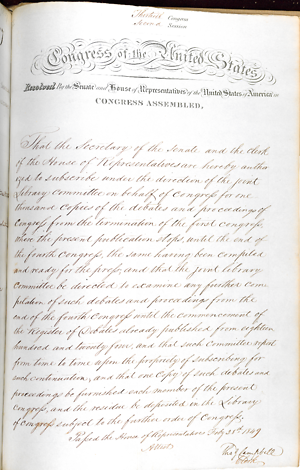 Thirtieth Congress
Second Session
Congress of the United States
Resolved By the Senate and House of Representatives of the United States of America in
CONGRESS ASSEMBLED,
That the Secretary of the Senate and the Clerk
of the House of Representatives are hereby autho
rized to subscribe under the direction of the joint
Library Committee in behalf of Congress for one
thousand copies of the debates and proceedings of
Congress from the termination of the first congress,
where the present publication stops, until the end of
the fourth Congress, the same having been compiled
and ready for the press, and that the joint library
committee be directed to examine any further com-
pilation of such debates and proceedings from the
end of the fourth Congress until the commencement of
the Register of Debates already published from eighteen
hundred and twenty four, and that such Committee report
from time to time upon the propriety of subscribing for
such continuation, and that one copy of such debates and
proceedings be furnished each member of the present
Congress, and the residue be deposited in the Library
of Congress subject to the further order of Congress,
Passed the House of Representatives Feby 1849
Attest
Tho J Campbell
Clerk